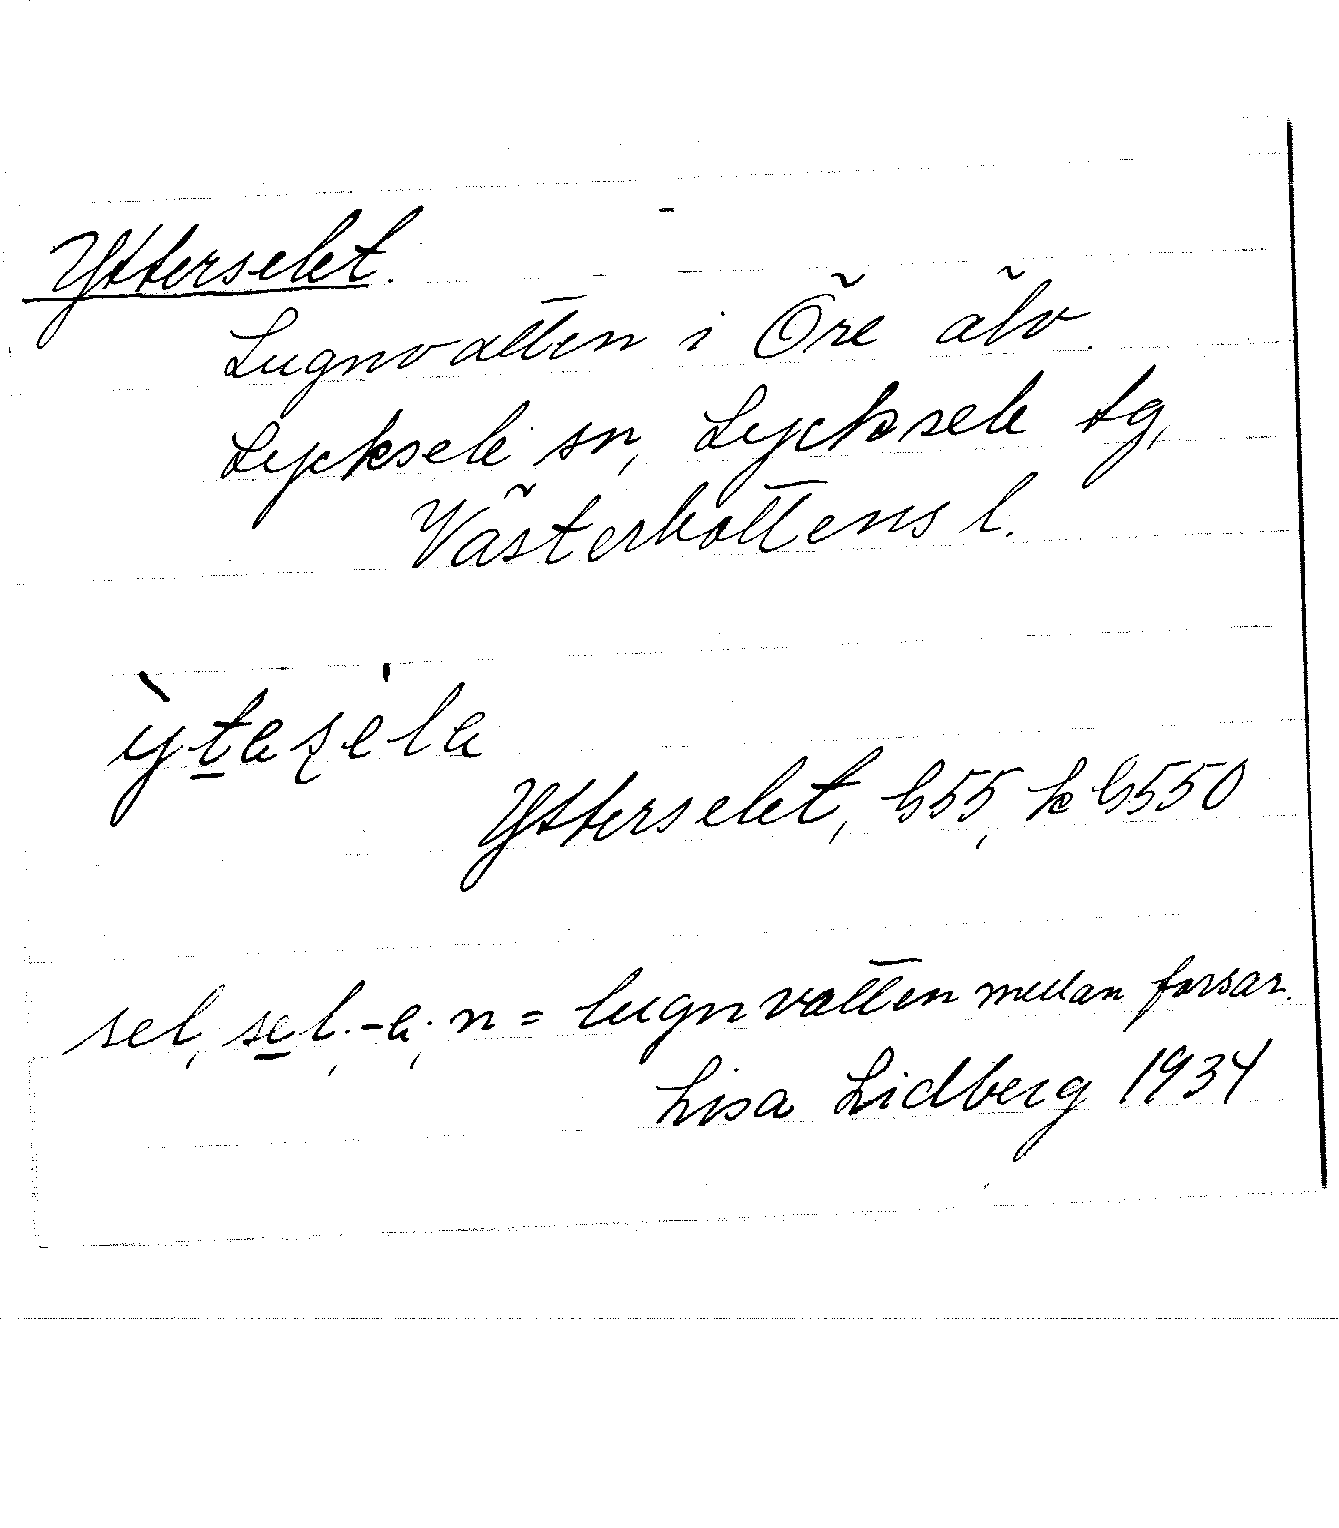 Ytterselet.
Lugnvatten i Öre älv.
Lycksele sn, Lycksele tg,
Västerbottens l.
ỳtaṣela
Ytterselet, G55, k G550
sel, sel. -a; n = lugnvatten mellan forsar.
Lisa Lidberg 1934